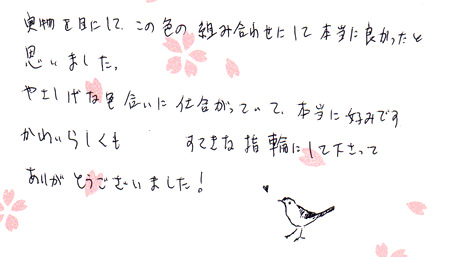 実物を目にして、この色の組み合わせにして本当に良かったと
思いました。
やさしげな色合いに仕上がっていて、本当に好みです
かわいらしくも すてきな指輪にして下さって
ありがとうございました!